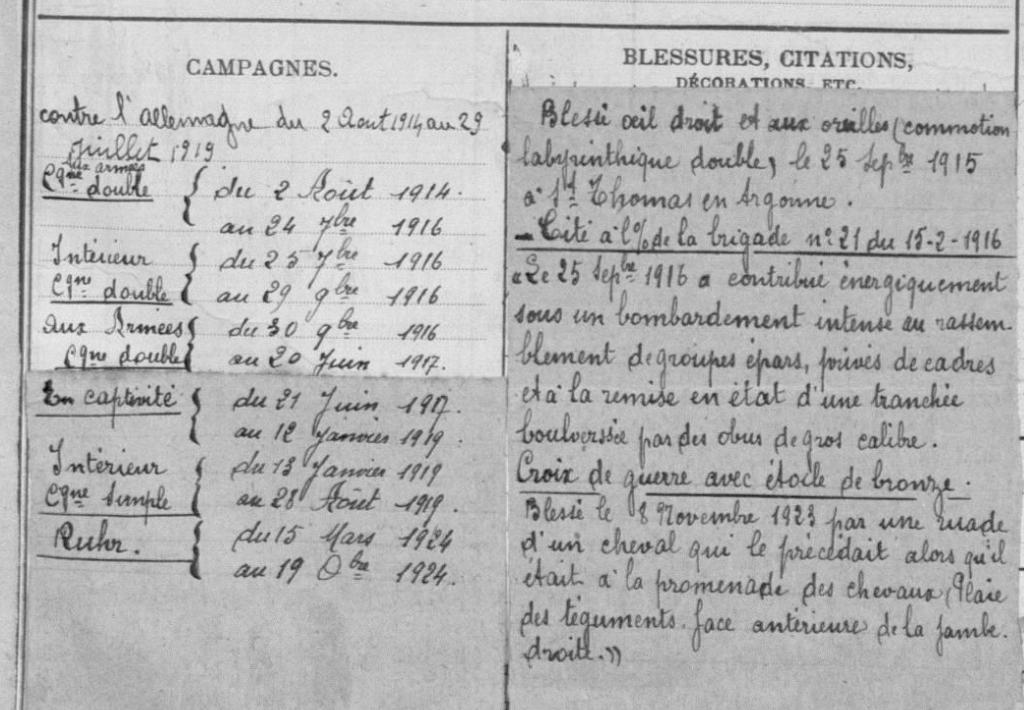 CAMPAGNES.
contre l'allemagne du 2 Aout 1914 au 29
Juillet 1919
aux armées
Cgne double { du 2 Août 1914.
au 24 7bre 1916
Intérieur { du 25 7bre 1916
Cgne double { au 29 9bre 1916
aux Armées { du 30 9bre 1916
Cgne double { au 20 Juin 1917.
En captivité { du 21 Juin 1917.
au 12 Janvier 1919.
Intérieur { du 13 Janvier 1919
Cgne simple { au 28 Août 1919.
Ruhr. { du 15 Mars 1924
au 19 Obre 1924.
BLESSURES, CITATIONS,
DÉCORATIONS, ETC.
Blessé œil droit et aux oreilles (commotion
labyrinthique double) le 25 Sepbre 1915
à St Thomas en Argonne.
- Cité à l'% de la brigade n° 21 du 15-2-1916
"Le 25 Sepbre 1916 a contribué énergiquement
sous un bombardement intense au rassem-
blement de groupes épars, privés de cadres
et à la remise en état d'une tranchée
boulverssée par des obus de gros calibre.
Croix de guerre avec étoile de bronze.
Blessé le 8 Novembre 1923 par une ruade
d'un cheval qui le précédait alors qu'il
était à la promenade des chevaux (Plaie
des téguments. face antérieure de la jambe.
droite.»